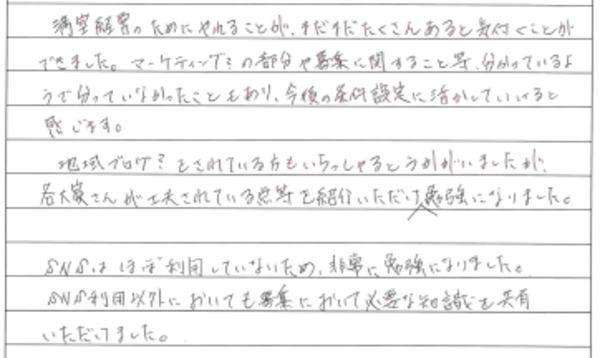 満室経営のためにやれることが、まだまだたくさんあると気付くことが
できました。マーケティングの部分や募集に関すること等、分かっているよ
うで分っていなかったこともあり、今後の条件設定に活かしていけると
感じます。
地域ブログをされている方もいらっしゃるとうかがいましたが、
各大家さんが工夫されている点等を紹介いただけ勉強になりました。
SNSはほぼ利用していないため、非常に勉強になりました。
SNS利用以外においても募集において必要な知識も共有
いただけました。